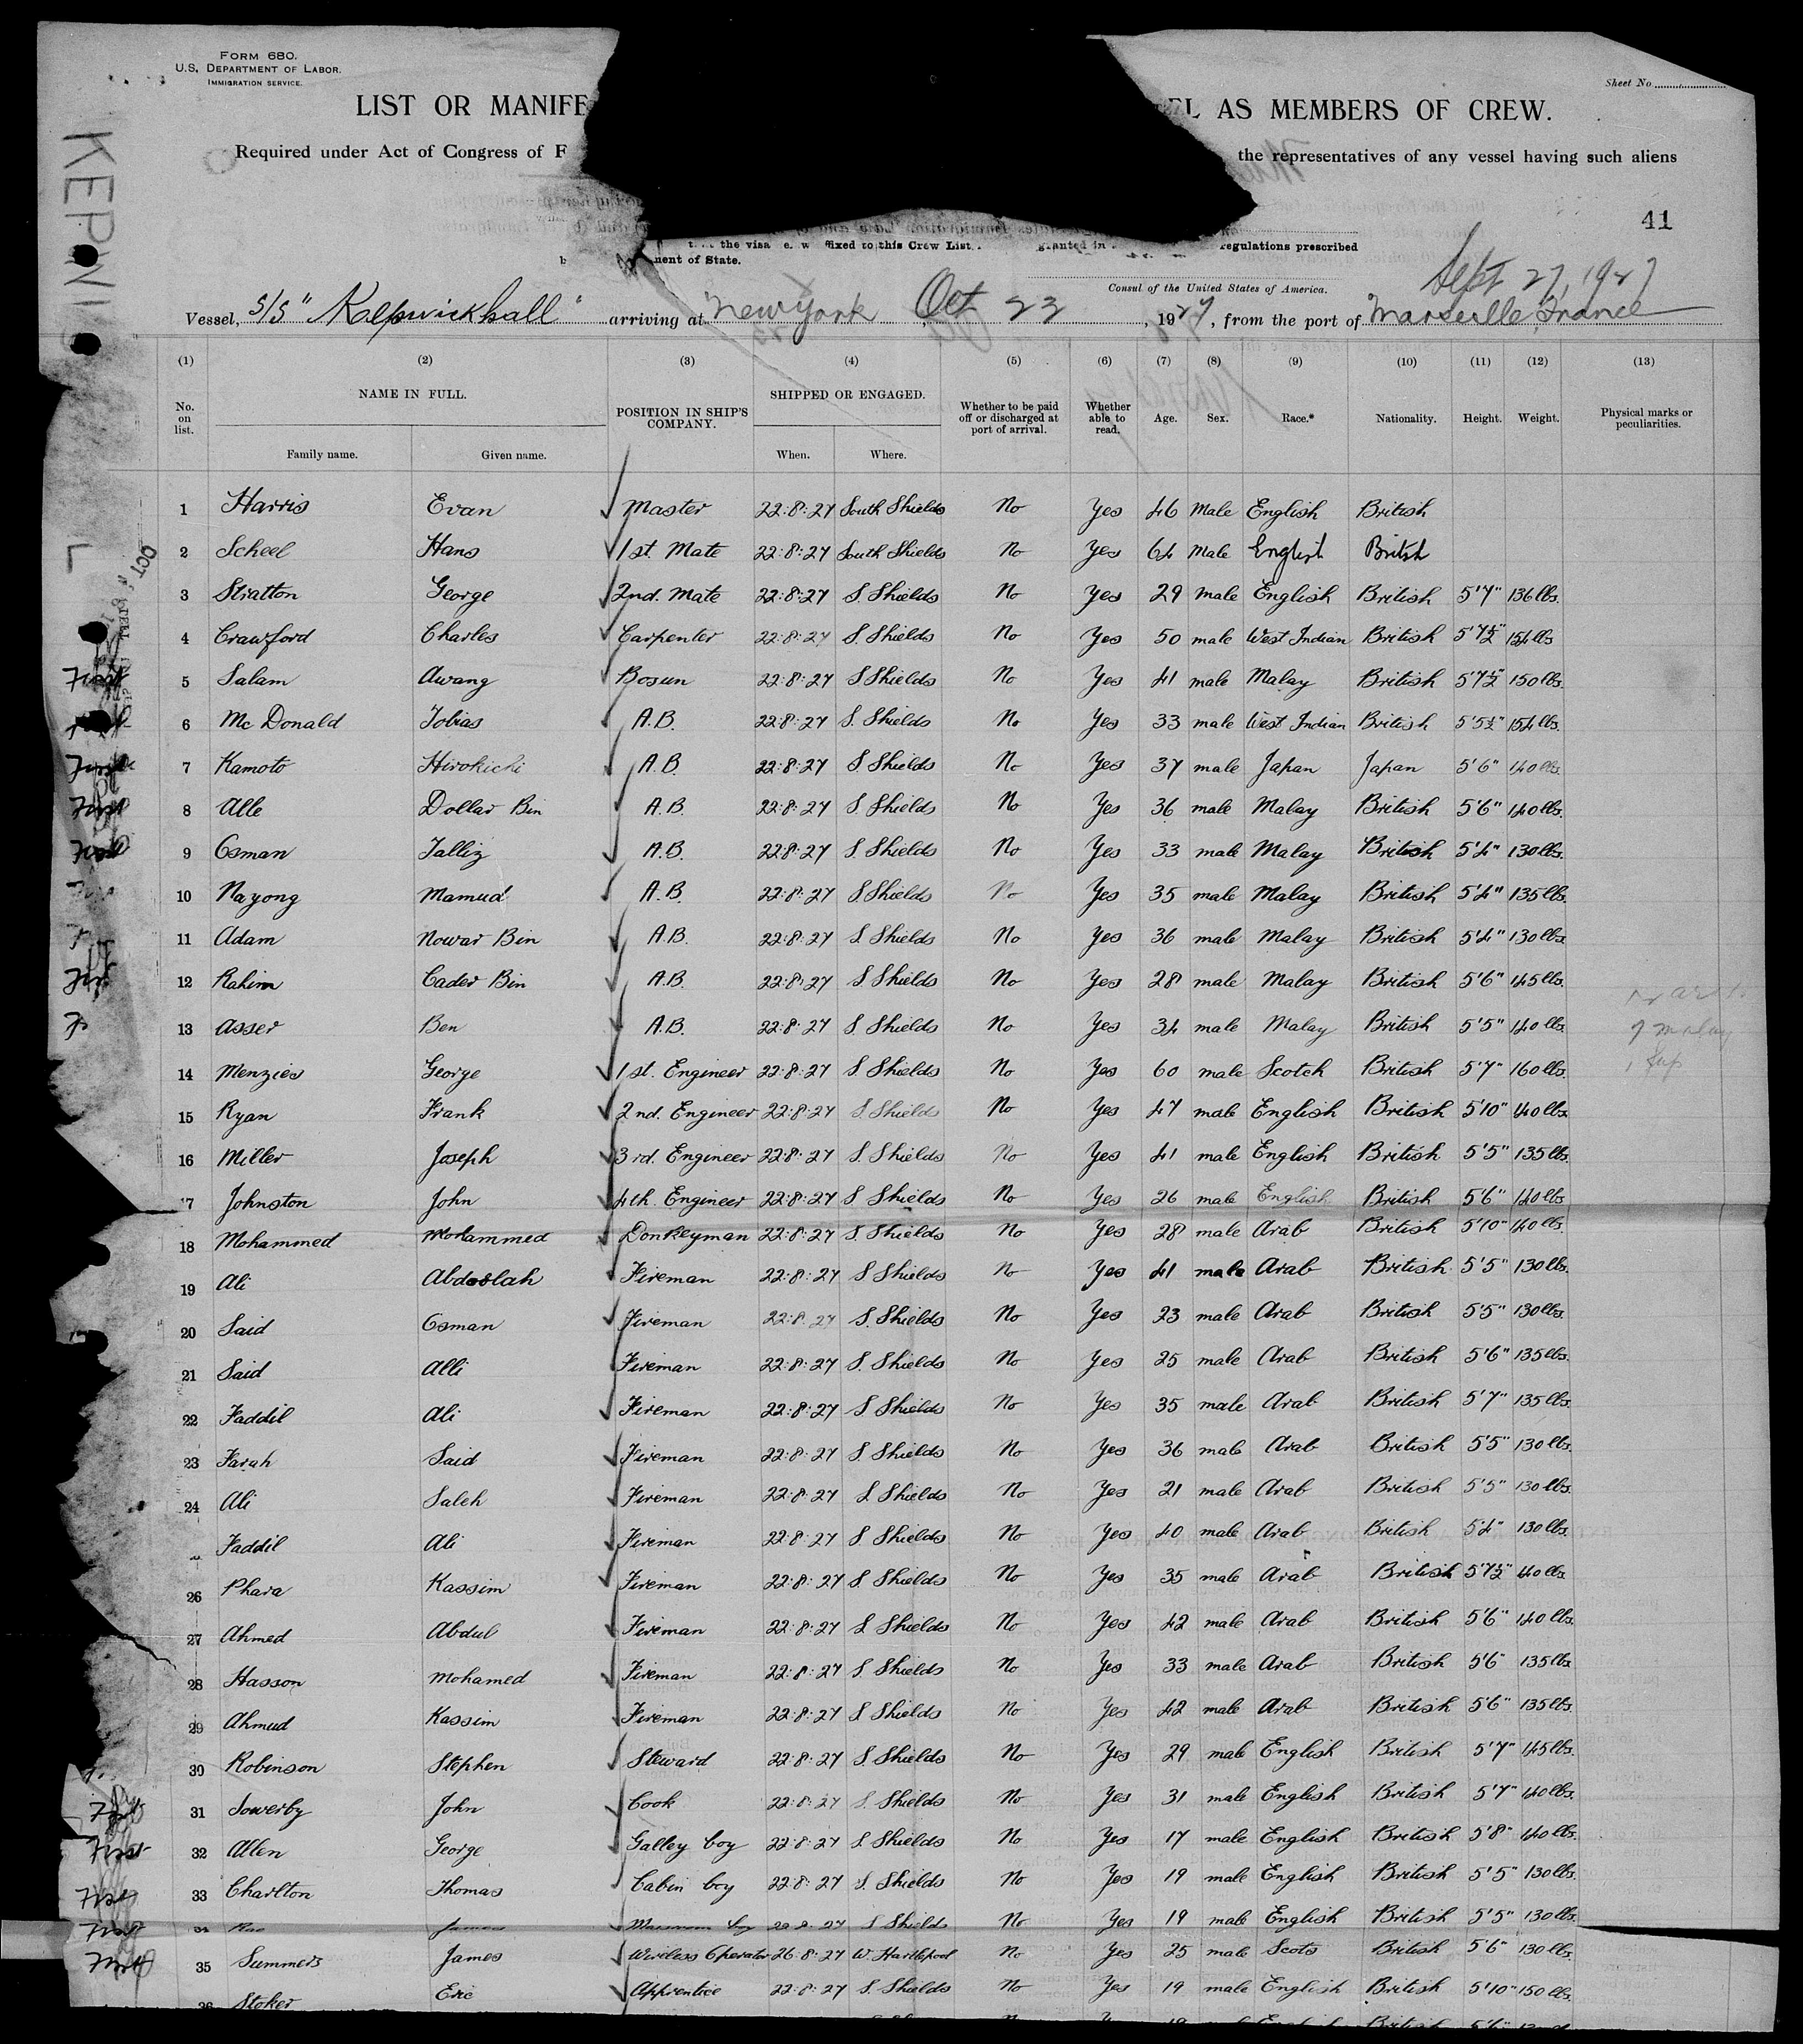 FORM 680.
U.S. DEPARTMENT OF LABOR.
IMMIGRATION SERVICE.
Sheet No.
LIST OR MANIFE AS MEMBERS OF CREW.
Required under Act of Congress of F the representatives of any vessel having such aliens
41
the visa fixed to this Crew List granted in regulations prescribed
ment of State.
Consul of the United States of America.
Sept 27, 1927
Vessel, S/S "Kepwickhall" arriving at New York Oct 22, 1927, from the port of Marseille, France
KEPWI
(1) (2) (3) (4) (5) (6) (7) (8) (9) (10) (11) (12) (13)
No. on list. NAME IN FULL. Family name. Given name. POSITION IN SHIP'S COMPANY. SHIPPED OR ENGAGED. When. Where. Whether to be paid off or discharged at port of arrival. Whether able to read. Age. Sex. Race.* Nationality. Height. Weight. Physical marks or peculiarities.
1 Harris Evan Master 22:8:27 South Shields No Yes 46 Male English British
2 Scheel Hans 1st. Mate 22:8:27 South Shields No Yes 64 Male English British
3 Stratton George 2nd. Mate 22:8:27 S. Shields No Yes 29 Male English British 5'7" 136 lbs.
4 Crawford Charles Carpenter 22:8:27 S. Shields No Yes 50 male West Indian British 5'7½" 154 lbs
First 5 Salam Awang Bosun 22:8:27 S Shields No Yes 41 male Malay British 5'7½" 150 lbs.
6 Mc Donald Tobias A.B. 22:8:27 S. Shields No Yes 33 male West Indian British 5'5½" 154 lbs.
First 7 Kamoto Hirokichi A.B. 22:8:27 S Shields No Yes 37 male Japan Japan 5'6" 140 lbs.
First 8 Alle Dollar Bin A.B. 22:8:27 S. Shields No Yes 36 male Malay British 5'6" 140 lbs.
First 9 Osman Talliz A.B. 22:8:27 S. Shields No Yes 33 male Malay British 5'4" 130 lbs.
10 Nayong Mamud A.B. 22:8:27 S Shields No Yes 35 male Malay British 5'4" 135 lbs.
11 Adam Nowar Bin A.B. 22:8:27 S Shields No Yes 36 male Malay British 5'4" 130 lbs
First 12 Rahim Cader Bin A.B. 22:8:27 S Shields No Yes 28 male Malay British 5'6" 145 lbs.
13 Asser Ben A.B. 22:8:27 S Shields No Yes 34 male Malay British 5'5" 140 lbs. 7 Malay
14 Menzies George 1st. Engineer 22:8:27 S Shields No Yes 60 male Scotch British 5'7" 160 lbs.
15 Ryan Frank 2nd. Engineer 22:8:27 S Shields No Yes 47 male English British 5'10" 140 lbs
16 Miller Joseph 3rd. Engineer 22:8:27 S. Shields No Yes 41 male English British 5'5" 135 lbs.
17 Johnston John 4th. Engineer 22:8:27 S Shields No Yes 26 male English British 5'6" 140 lbs.
18 Mohammed Mohammed Donkeyman 22:8:27 S. Shields No Yes 28 male Arab British 5'10" 140 lbs.
19 Ali Abdoolah Fireman 22:8:27 S Shields No Yes 41 male Arab British 5'5" 130 lbs.
20 Said Osman Fireman 22:8:27 S. Shields No Yes 23 male Arab British 5'5" 130 lbs.
21 Said Alli Fireman 22:8:27 S. Shields No Yes 25 male Arab British 5'6" 135 lbs.
22 Faddil Ali Fireman 22:8:27 S Shields No Yes 35 male Arab British 5'7" 135 lbs.
23 Farah Said Fireman 22:8:27 S. Shields No Yes 36 male Arab British 5'5" 130 lbs.
24 Ali Saleh Fireman 22:8:27 S Shields No Yes 21 male Arab British 5'5" 130 lbs.
Faddil Ali Fireman 22:8:27 S Shields No Yes 40 male Arab British 5'4" 130 lbs.
26 Phara Kassim Fireman 22:8:27 S Shields No Yes 35 male Arab British 5'7½" 140 lbs
27 Ahmed Abdul Fireman 22:8:27 S Shields No Yes 42 male Arab British 5'6" 140 lbs.
28 Hasson Mohamed Fireman 22:8:27 S Shields No Yes 33 male Arab British 5'6" 135 lbs
29 Ahmud Kassim Fireman 22:8:27 S Shields No Yes 42 male Arab British 5'6" 135 lbs.
30 Robinson Stephen Steward 22:8:27 S. Shields No Yes 29 male English British 5'7" 145 lbs.
First 31 Sowerby John Cook 22:8:27 S. Shields No Yes 31 male English British 5'7" 140 lbs.
First 32 Allen George Galley boy 22:8:27 S. Shields No Yes 17 male English British 5'8" 140 lbs.
First 33 Charlton Thomas Cabin boy 22:8:27 S. Shields No Yes 19 male English British 5'5" 130 lbs.
First 34 Rae James Messroom boy 22:8:27 S Shields No Yes 19 male English British 5'5" 130 lbs.
First 35 Summers James Wireless Operator 26:8:27 W. Hartlepool No Yes 25 male Scots British 5'6" 130 lbs.
36 Stoker Eric Apprentice 22:8:27 S. Shields No Yes 19 male English British 5'10" 150 lbs.